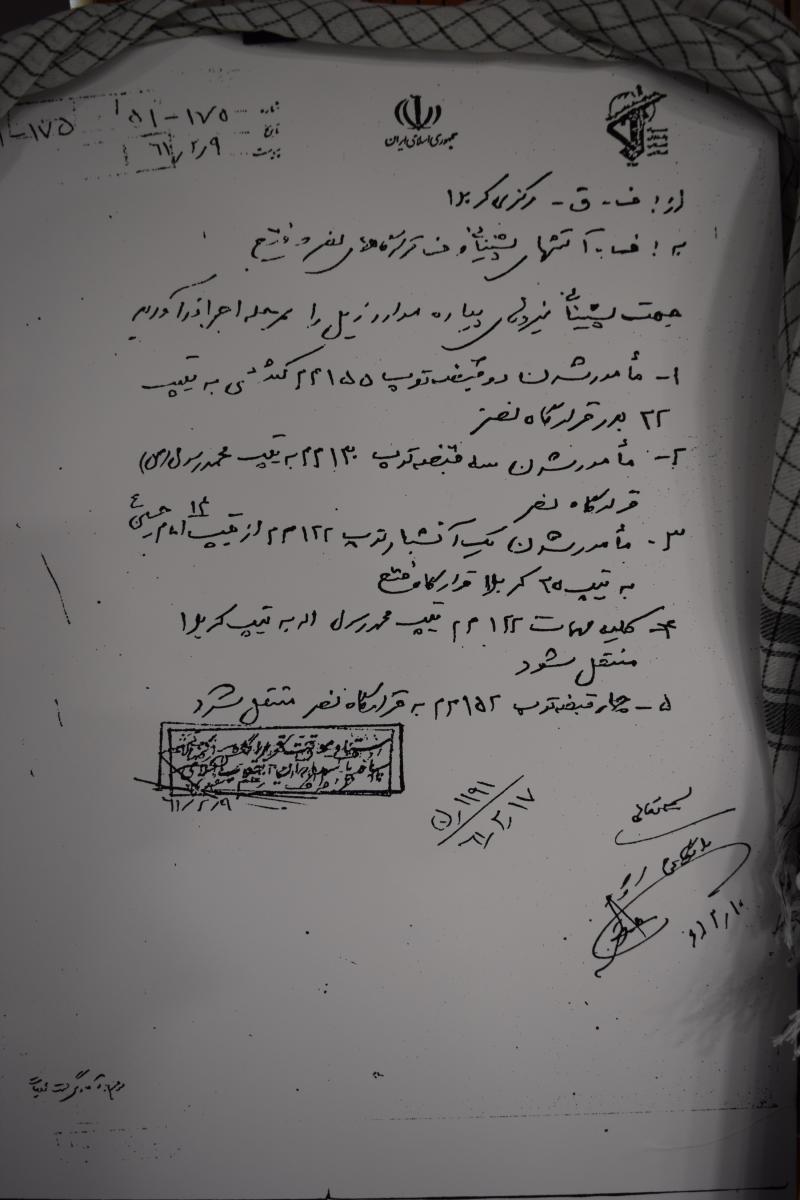 شماره ۵۱-۱۷۵
تاریخ ۶۱/۲/۹
پیوست
۱-۱۷۵
جمهوری اسلامی ایران
از: ف - ق - مرکزی کربلا
به: ف - آتشهای پشتیبانی و ف قرارگاههای نصر و فتح
جهت پشتیبانی نیروهای پیاده موارد زیل را بمرحله اجرا درآورید
۱- مأمور شدن دو قبضه توپ ۱۵۵ م م کششی به تیپ
۲۲ بدر قرارگاه نصر
۲- مأمور شدن سه قبضه توپ ۱۳۰ م م به تیپ محمد رسول (ص)
قرارگاه نصر
۳- مأمور شدن یک آتشبار توپ ۱۲۲ م م از تیپ ۱۴ امام حسین ع
به تیپ ۲۵ کربلا قرارگاه فتح
۴- کلیه مهمات ۱۲۲ م م تیپ محمد رسول اله به تیپ کربلا
منتقل شود
۵- چهار قبضه توپ ۱۵۲ م م به قرارگاه نصر منتقل شود
۶۱/۲/۹
۱۱۹۱/ن
۶۱/۳/۱۷
بسمه تعالی
بایگانی